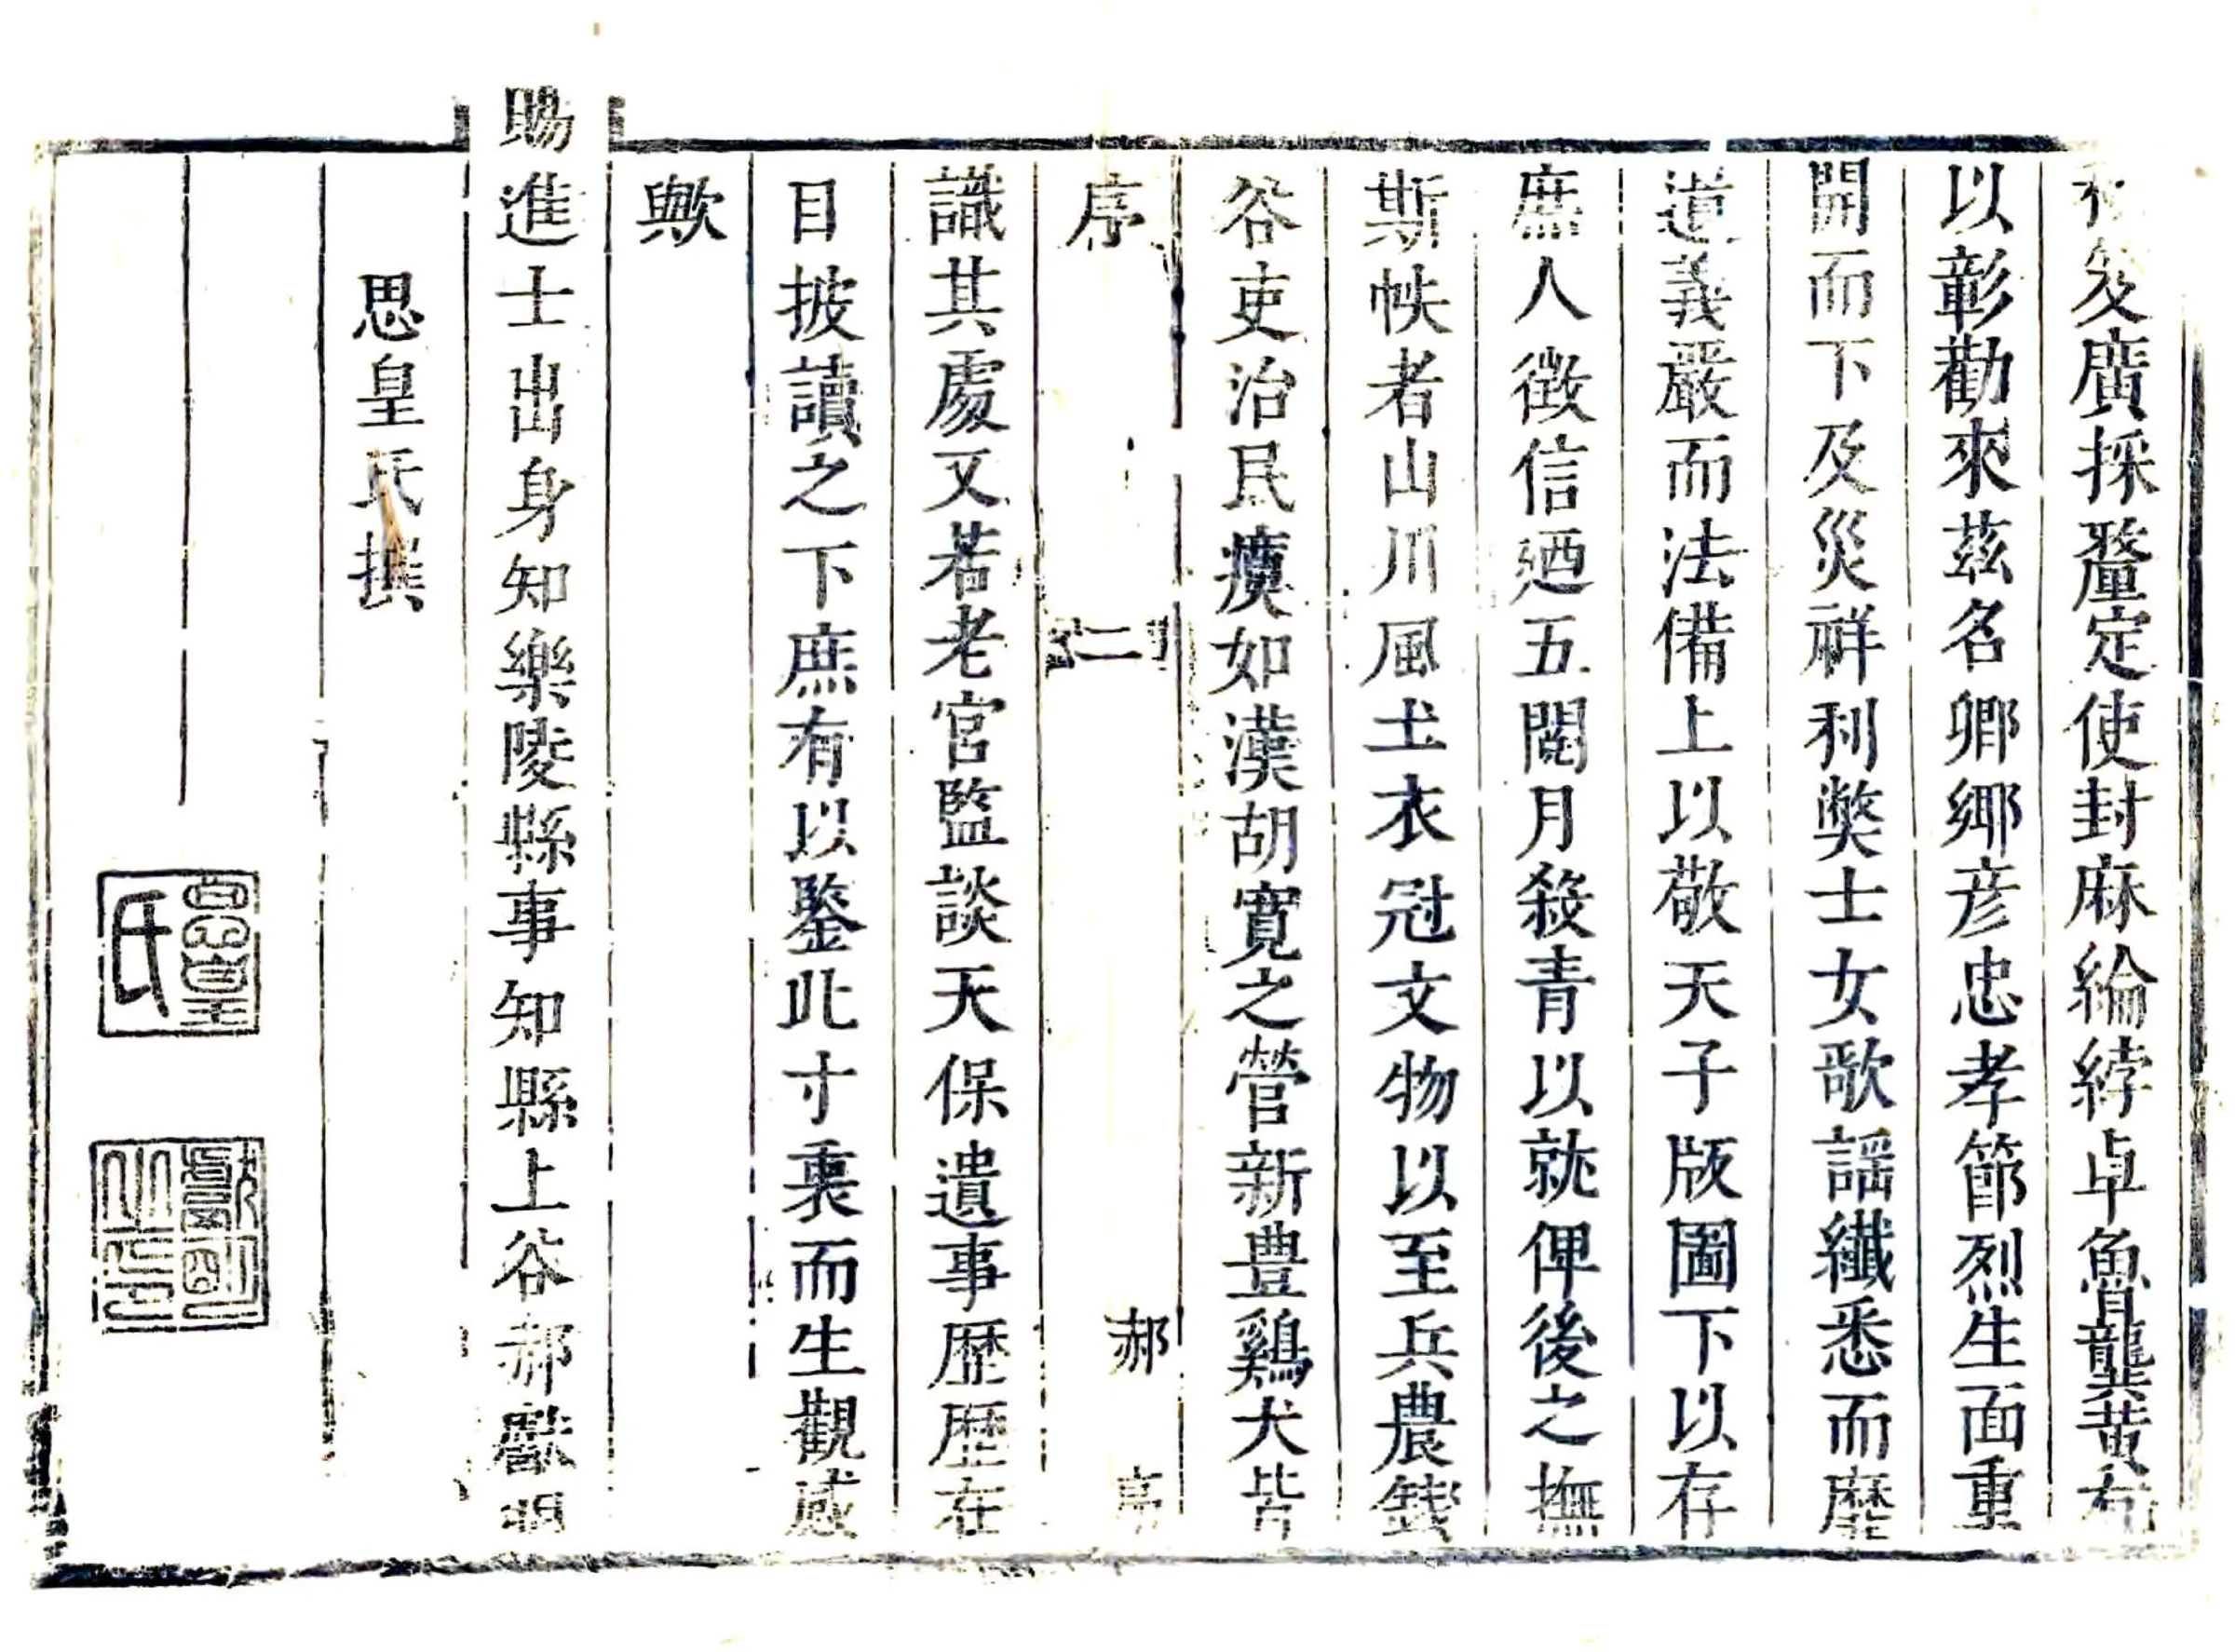 廣採釐定使封麻綸綍卓魯龔黃有
以彰勸來茲名卿鄉彦忠孝節烈生面重
開而下及災祥利獘士女歌謡纎悉而靡
道義嚴而法備上以敬天子版圖下以存
庶人徵信廼五閱月殺青以就俾後之撫
斯帙者山川風土衣冠文物以至兵農錢
谷吏治民瘼如漢胡寛之營新豊鷄犬皆
序
二
郝
序
識其處又若老官監談天保遺事歴歴在
目披讀之下庶有以鍳此寸衷而生觀感
歟
賜進士出身知樂陵縣事知縣上谷郝獻明
思皇氏撰
思皇氏
獻明之印